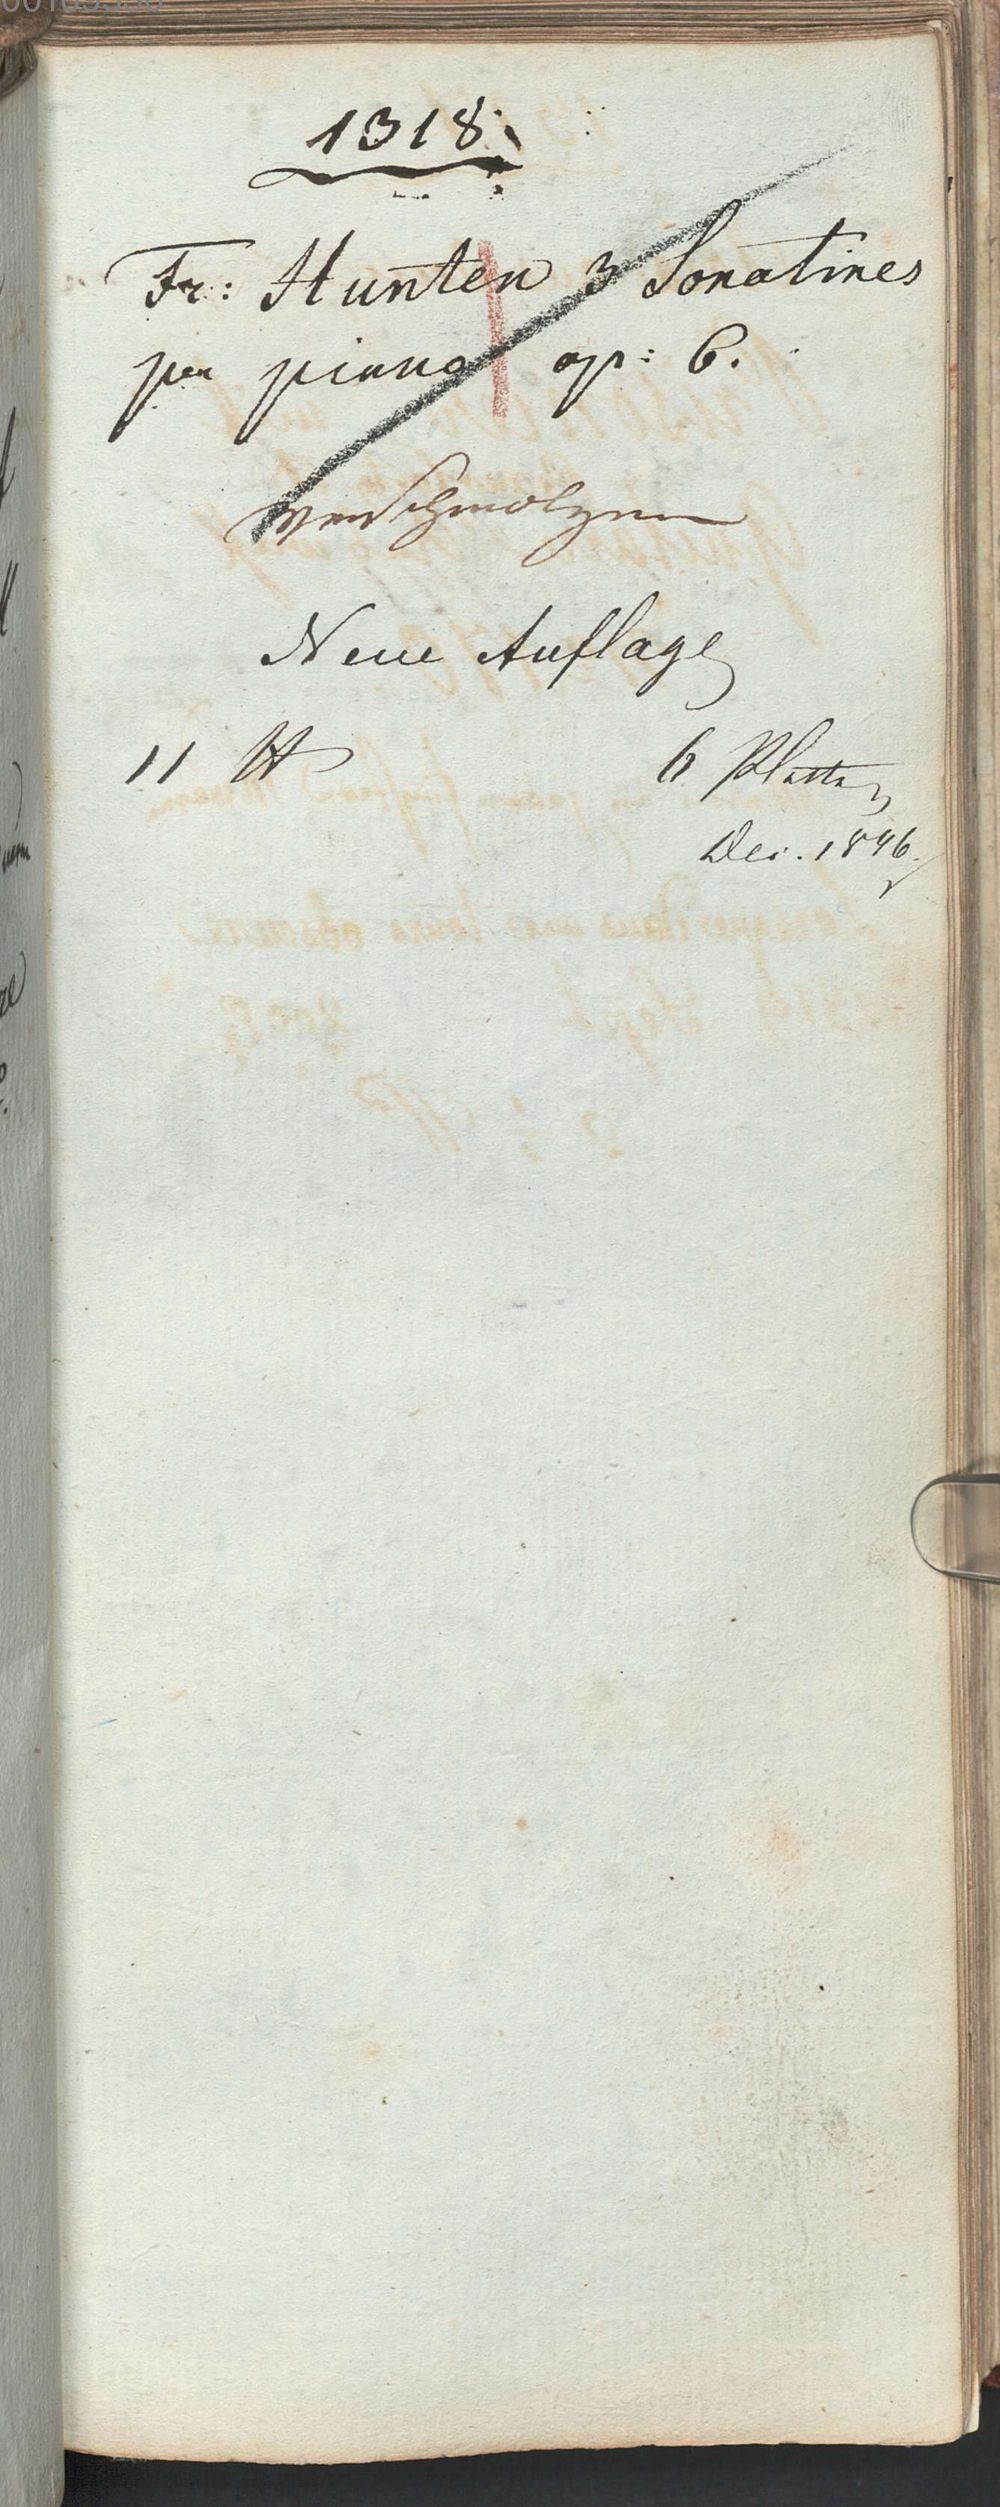 1318.
Fr: Hunten 3 Sonatines
per piano op: 6.
verschmolzen
Neue Auflage
11 H 6 Platten
Dec. 1846.